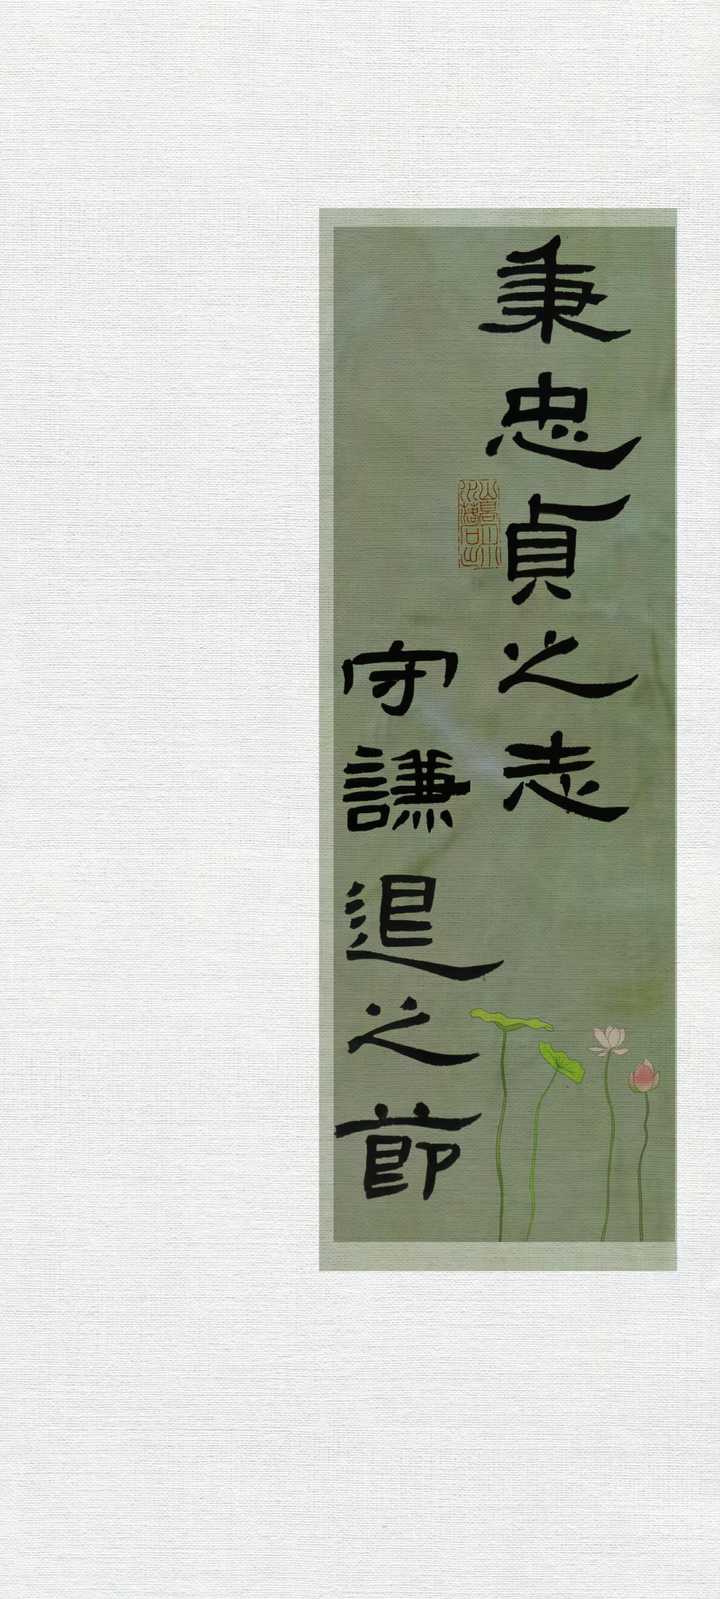 秉忠貞之志
守謙退之節